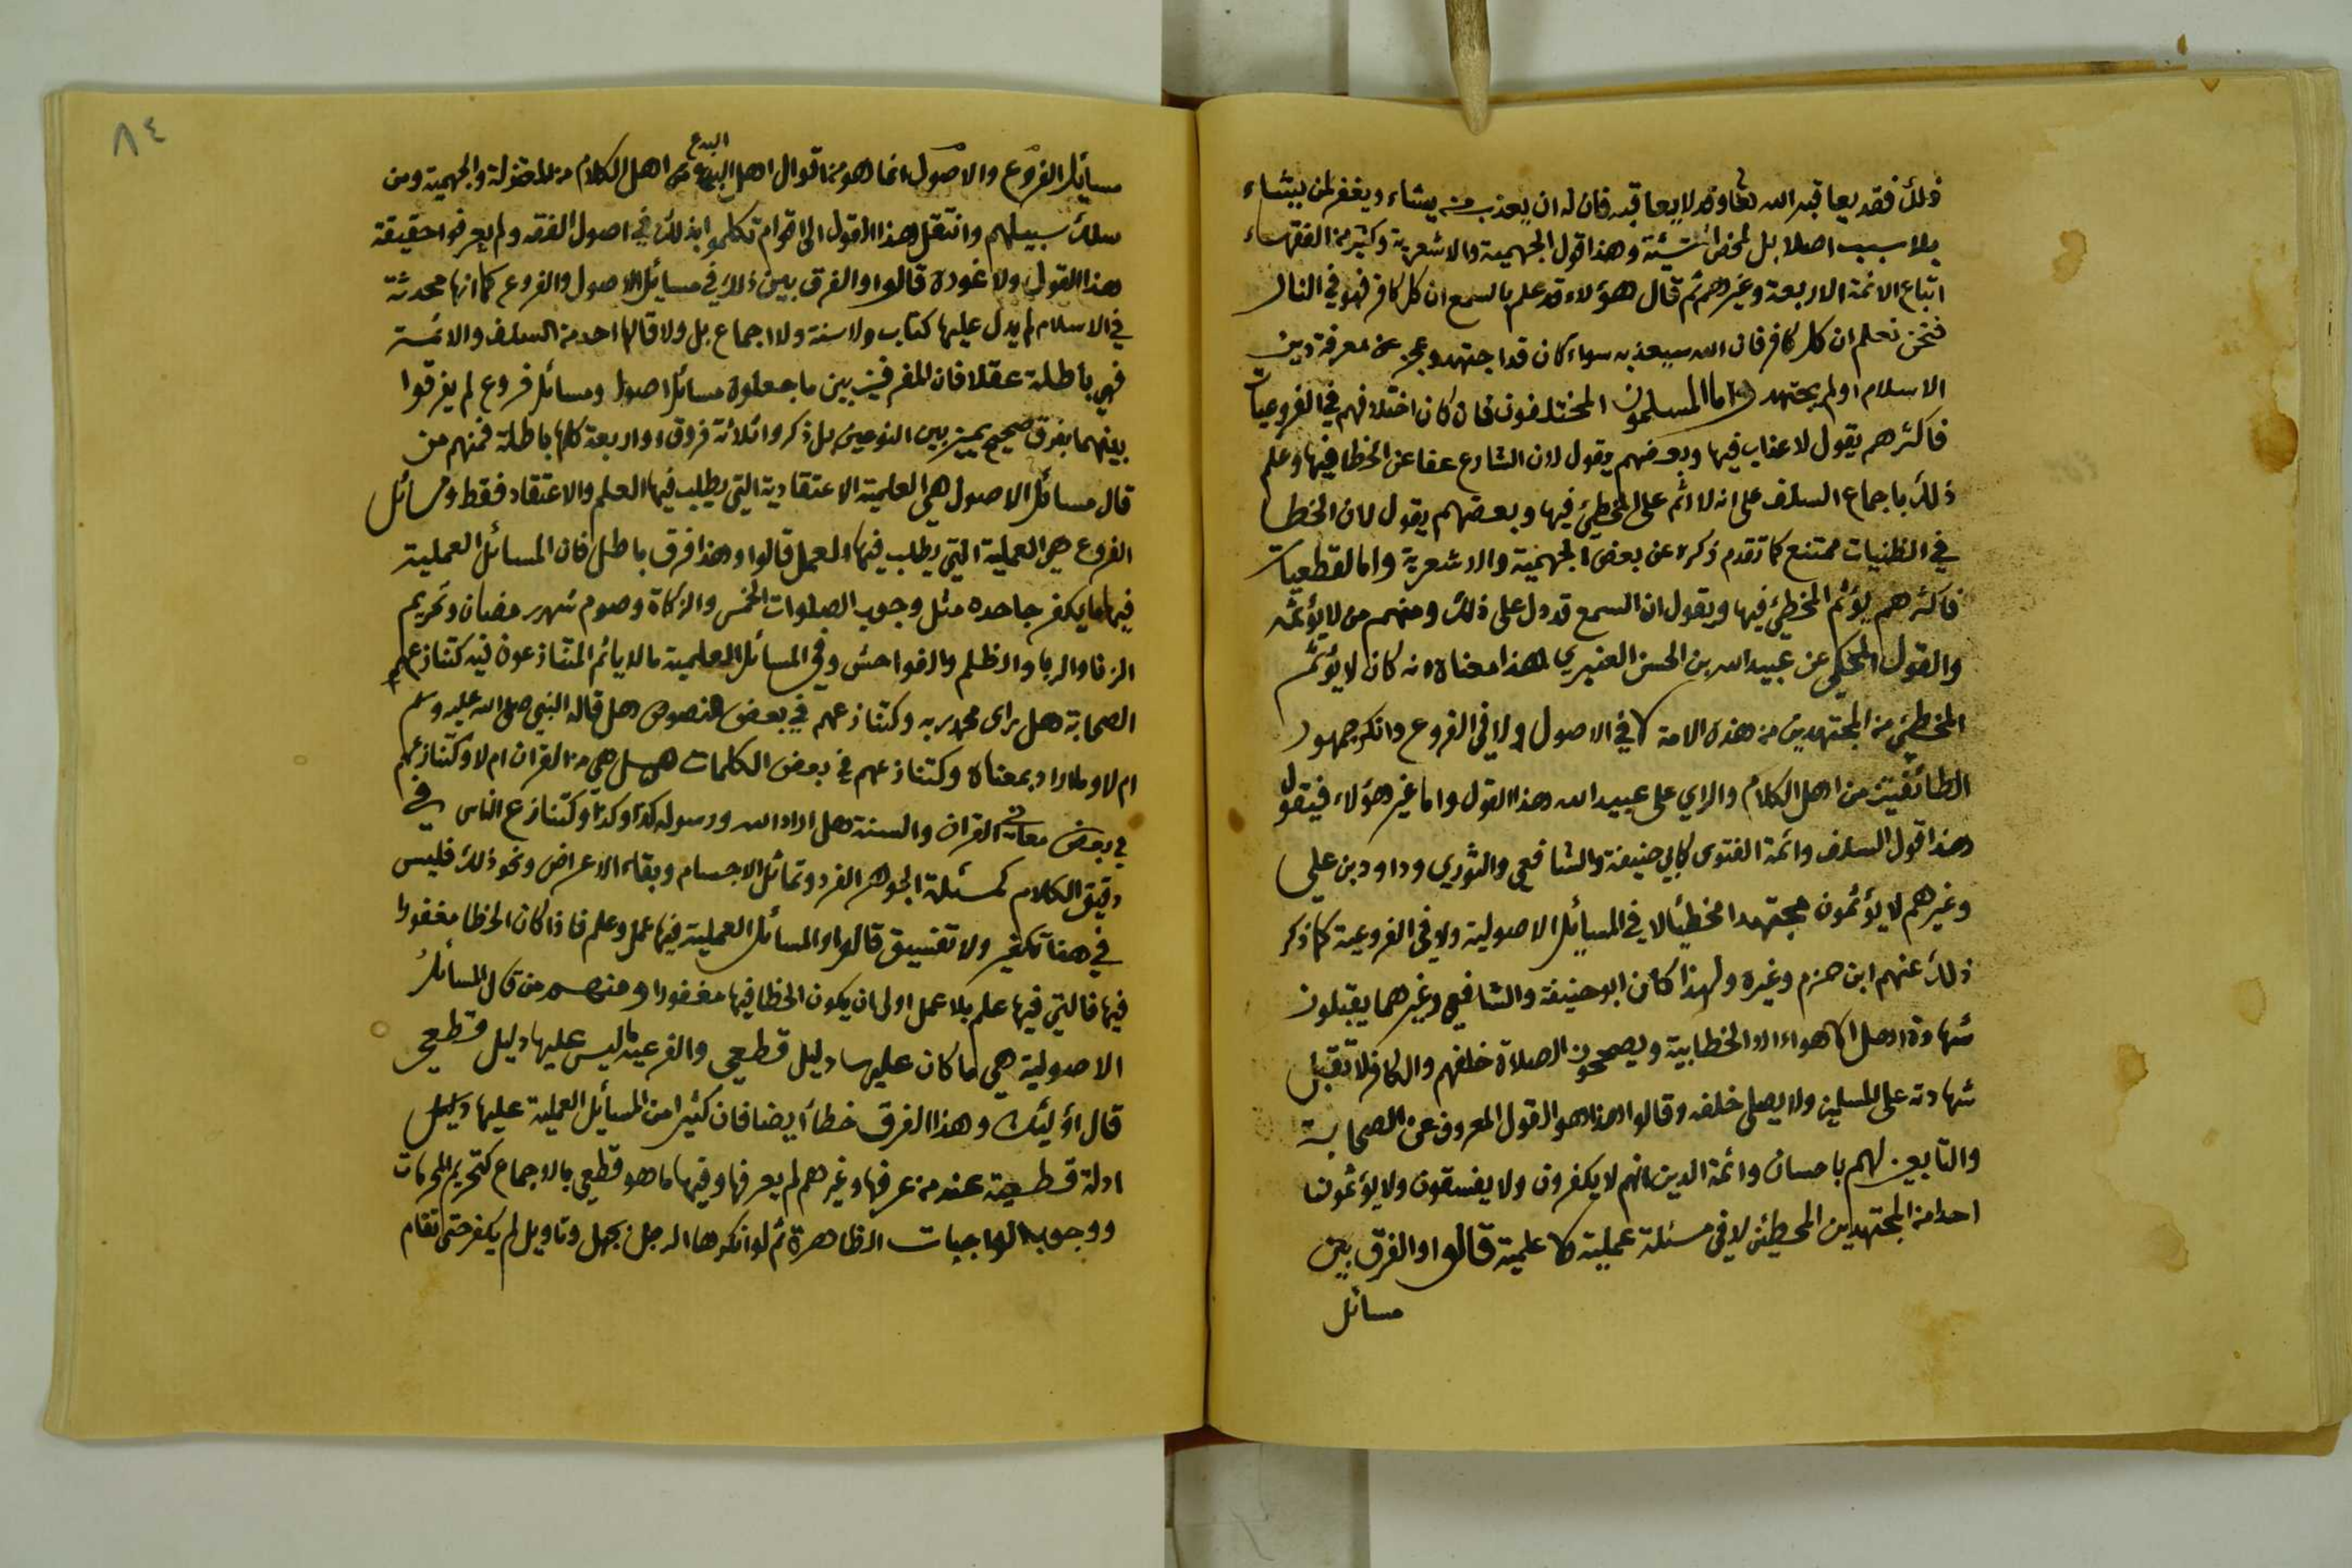 ذلك فقد يعاقبه الله تعا وقد لا يعاقبه فان له ان يعذب من يشاء ويغفر لمن يشاء
بلا سبب اصلا بل لمحض المشيئة وهذا قول الجهمية والاشعرية وكثير من الفقهاء
اتباع الائمة الاربعة وغيرهم ثم قال هؤلاء قد علم بالسمع ان كل كافر فهو في النار
فنحن نعلم ان كل كافر فان الله سيعذبه سواء كان قد اجتهد وعجز عن معرفة دين
الاسلام او لم يجتهد واما المسلمون المختلفون فان كان اختلافهم في الفروعيات
فاكثرهم يقول لا عذاب فيها وبعضهم يقول لان الشارع عفا عن الخطا فيها وعلم
ذلك باجماع السلف على انه لا اثم على المخطئ فيها وبعضهم يقول لان الخطا
في الظنيات ممتنع كما تقدم ذكره عن بعض الجهمية والاشعرية واما القطعيات
فاكثرهم يؤثم المخطئ فيها ويقول ان السمع قد دل على ذلك ومنهم من لا يؤثمه
والقول المحكي عن عبيد الله بن الحسن العنبري لهذا معناه انه كان لا يؤثم
المخطئ من المجتهدين من هذه الامة لا في الاصول ولا في الفروع وانكر جمهور
الطائفتين من اهل الكلام والراي على عبيد الله هذا القول واما غير هؤلاء فيقول
هذا قول السلف وائمة الفتوى كابي حنيفة والشافعي والثوري وداود بن علي
وغيرهم لا يؤثمون مجتهدا مخطئا لا في المسايل الاصولية ولا في الفروعية كما ذكر
ذلك عنهم ابن حزم وغيره ولهذا كان ابو حنيفة والشافعي وغيرهما يقبلون
شهادة اهل الاهواء الا الخطابية ويصححون الصلاة خلفهم والكافر لا تقبل
شهادته على المسلمين ولا يصلى خلفه وقالوا هذا هو القول المعروف عن الصحابة
والتابعين لهم باحسان وائمة الدين انهم لا يكفرون ولا يفسقون ولا يؤثمون
احدا من المجتهدين المخطئين لا في مسئلة عملية لا علمية قالوا والفرق بين
مسائل
٨٤
البدع
مسايل الفروع والاصول انما هو من اقوال اهل من اهل الكلام من المعتزلة والجهمية ومن
سلك سبيلهم وانتقل هذا القول الى اقوام تكلموا بذلك في اصول الفقه ولم يعرفوا حقيقة
هذا القول ولا غوره قالوا والفرق بين ذلك في مسايل الاصول والفروع كما انها محدثة
في الاسلام لم يدل عليها كتاب ولا سنة ولا اجماع بل ولا قالها احد من السلف والائمة
فهي باطلة عقلا فان المفرقين بين ما جعلوه مسائل اصول ومسائل فروع لم يفرقوا
بينهما بفرق صحيح يميز بين النوعين بل ذكروا ثلاثة فروق او اربعة كلها باطلة فمنهم من
قال مسائل الاصول هي العلمية الاعتقادية التي يطلب فيها العلم والاعتقاد فقط ومسائل
الفروع هي العملية التي يطلب فيها العمل قالوا وهذا فرق باطل فان المسائل العملية
فيها ما يكفر جاحده مثل وجوب الصلوات الخمس والزكاة وصوم شهر رمضان وتحريم
الزنا والربا والظلم والفواحش وفي المسائل العلمية ما لا ياثم المتنازعون فيه كتنازعهم
الصحابة هل راى محمد ربه وكتنازعهم في بعض النصوص هل قاله النبي صلى الله عليه وسلم
ام لا وما اراد بمعناه وكتنازعهم في بعض الكلمات هل هي من القران ام لا وكتنازعهم
في بعض معاني القران والسنة هل اراد الله ورسوله كذا وكذا وكتنازع الناس في
دقيق الكلام كمسئلة الجوهر الفرد وتماثل الاجسام وبقاء الاعراض ونحو ذلك فليس
في هذا تكفير ولا تفسيق قالوا والمسائل العملية فيها عمل وعلم فاذا كان الخطا مغفورا
فيها فالتي فيها علم بلا عمل اولى ان يكون الخطا فيها مغفورا ومنهم من قال المسائل
الاصولية هي ما كان عليها دليل قطعي والفرعية ما ليس عليها دليل قطعي
قال اولئك وهذا الفرق خطأ ايضا فان كثيرا من المسائل العملية عليها دليل
ادلة قطعية عند من عرفها وغيرهم لم يعرفها وفيها ما هو قطعي بالاجماع كتحريم المحرمات
ووجوب الواجبات الظاهرة ثم لو انكرها الرجل بجهل وتاويل لم يكفر حتى تقام